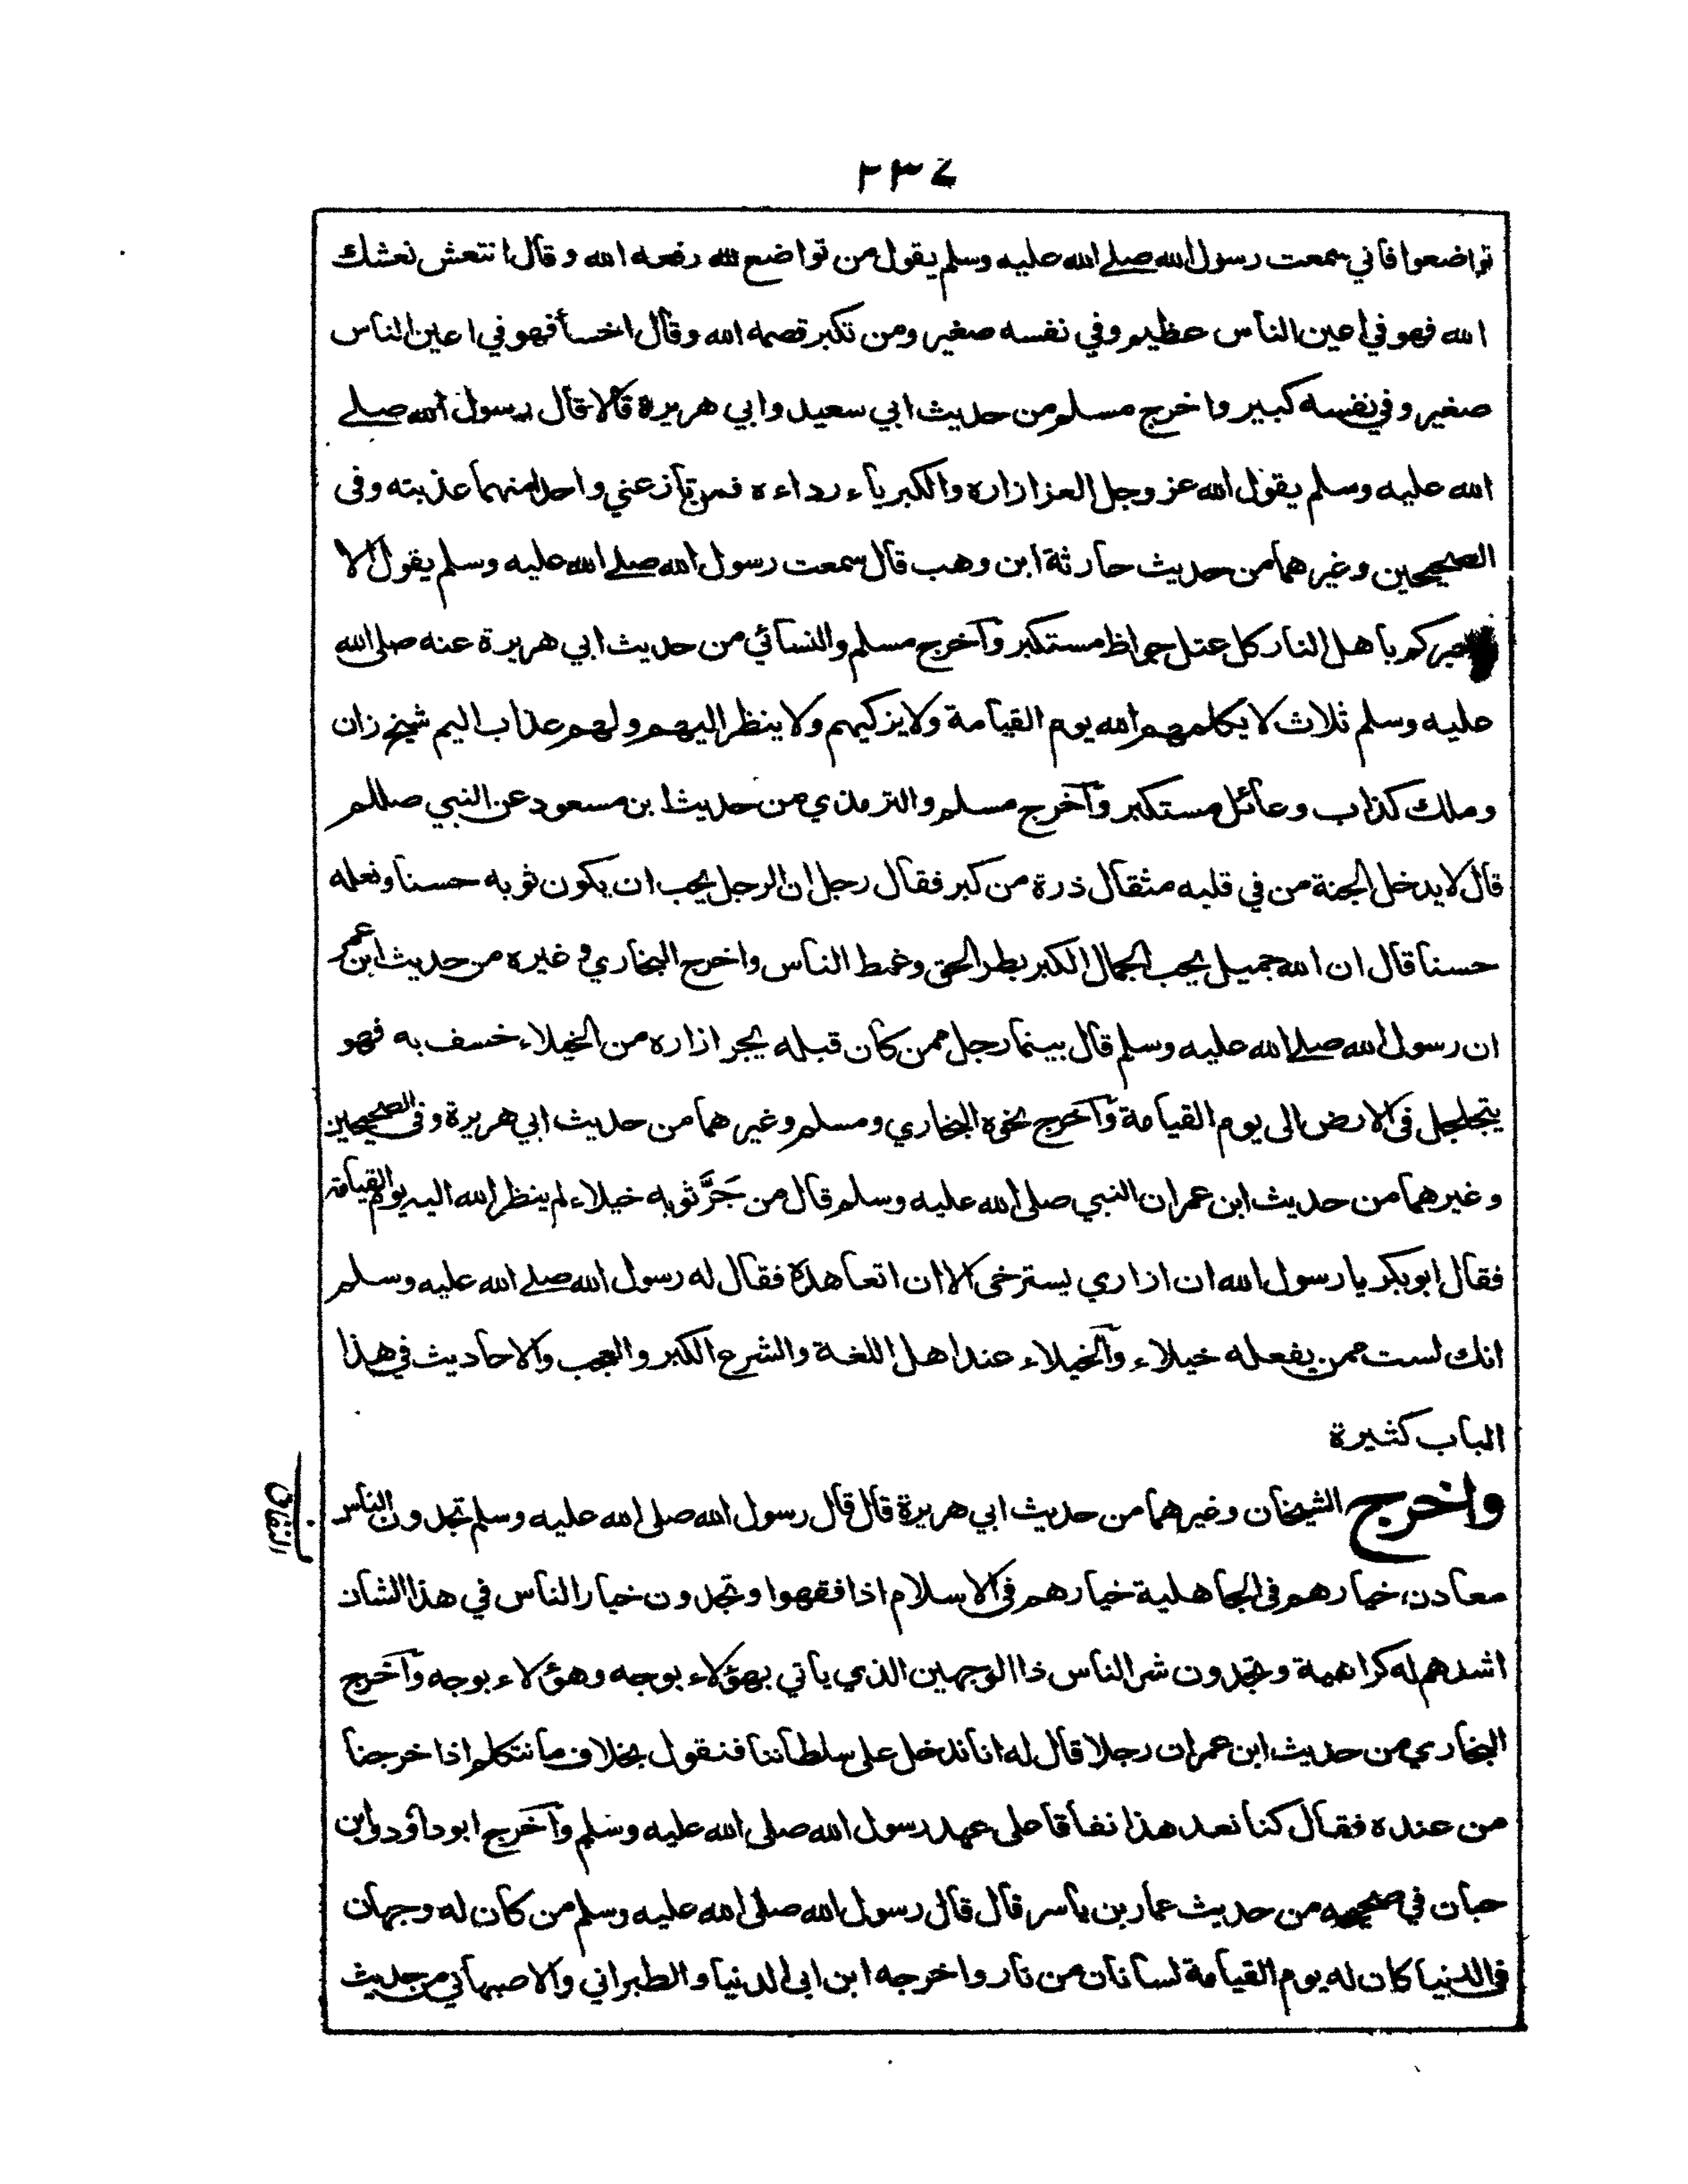 ٢٣٤
تواضعوا فاني سمعت رسول الله صلى الله عليه وسلم يقول من تواضع لله رفعه الله وقال انتعش نعشك
الله فهو في اعين الناس عظيم وفي نفسه صغير ومن تكبر قصمه الله وقال اخسأ فهو في اعين الناس
صغير وفي نفسه كبير واخرج مسلم من حديث ابي سعيد وابي هريرة قالا قال رسول الله صلے
الله عليه وسلم يقول الله عز وجل العز ازاره والكبرياء رداءه فمن نازعني واحدا منهما عذبته وفى
الصحيحين وغيرهما من حديث حارثة ابن وهب قال سمعت رسول الله صلے الله عليه وسلم يقول الا
اخبركم باهل النار كل عتل جواظ مستكبر وآخرج مسلم والنسائي من حديث ابي هريرة عنه صلى الله
عليه وسلم ثلاث لا يكلمهم الله يوم القيامة ولا يزكيهم ولا ينظر اليهم ولهم عذاب اليم شيخ زان
وملك كذاب وعائل مستكبر وآخرج مسلم والترمذي من حديث ابن مسعود عن النبي صللم
قال لا يدخل الجنة من في قلبه مثقال ذرة من كبر فقال رجل ان الرجل يحب ان يكون ثوبه حسنا ونعله
حسنا قال ان الله جميل يحب الجمال الكبر بطر الحق وغمط الناس واخرج البخاري و غيره من حديث ابن عمر
ان رسول الله صلے الله عليه وسلم قال بينما رجل ممن كان قبله يجر ازاره من الخيلاء خسف به فهو
يتجلجل فى الارض الى يوم القيامة وآخرج نحوه البخاري ومسلم وغيرهما من حديث ابي هريرة وفى الصحيحين
وغيرهما من حديث ابن عمر ان النبي صلى الله عليه وسلم قال من جَرَّ ثوبه خيلاء لم ينظر الله اليه يوم القيامة
فقال ابو بكر يا رسول الله ان ازاري يسترخى الا ان اتعاهده فقال له رسول الله صلے الله عليه وسلم
انك لست ممن يفعله خيلاء وآلخيلاء عند اهل اللغة والشرع الكبر والعجب والاحاديث في هذا
الباب كثيرة
واخرج الشيخان وغيرهما من حديث ابي هريرة قال قال رسول الله صلى الله عليه وسلم تجدون الناس
النفاق
معادن خيارهم فى الجاهلية خيارهم فى الاسلام اذا فقهوا وتجدون خيار الناس في هذا الشان
اشدهم له كراهية وتجدون شر الناس ذا الوجهين الذي ياتي بهؤلاء بوجه وهؤلاء بوجه وآخرج
البخاري من حديث ابن عمر ان رجلا قال له انا ندخل على سلطاننا فنقول بخلاف ما نتكلم اذا خرجنا
من عنده فقال كنا نعد هذا نفاقا على عهد رسول الله صلى الله عليه وسلم وآخرج ابو داؤد وابن
حبان في صحيحه من حديث عمار بن ياسر قال قال رسول الله صلى الله عليه وسلم من كان له وجهان
فى الدنيا كان له يوم القيامة لسانان من نار واخرجه ابن ابى الدنيا والطبراني والاصبهاني من حديث